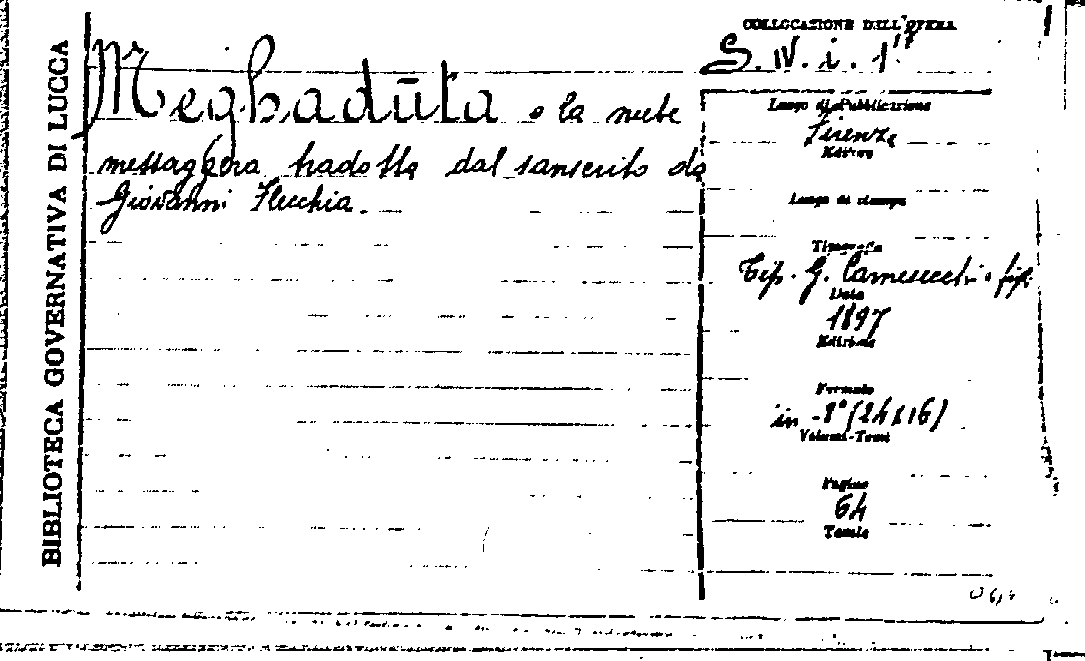 BIBLIOTECA GOVERNATIVA DI LUCCA
Meghadūta o la nube
messaggera tradotta dal sanscrito da
Giovanni Flechia.
COLLOCAZIONE DELL'OPERA
S. IV. i. 1
Luogo di Pubblicazione
Firenze
Editore
Luogo di stampa
Tipografia
Tip. G. Carnesecchi e figli
Data
1897
Edizione
Formato
in -8° (24x16)
Volumi-Tomi
Pagine
64
Tavole